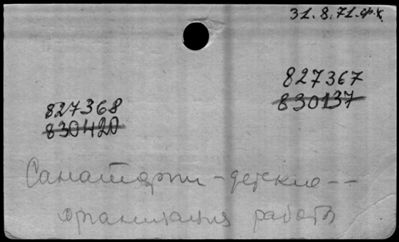 31.8.71.ср.к.
827367
830137
827368
830420
Санатории - детские --
организация работы